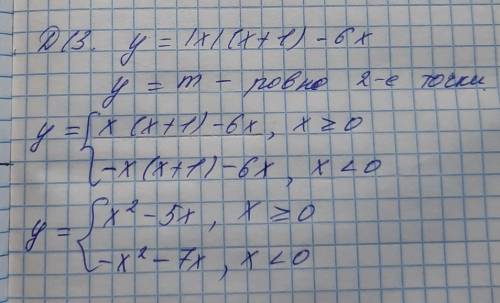 Д/З. y = |x|(x+1) - 6x
y = m - ровно 2-е точки.
y = { x(x+1) - 6x, x ≥ 0
-x(x+1) - 6x, x < 0
y = { x² - 5x, x ≥ 0
-x² - 7x, x < 0